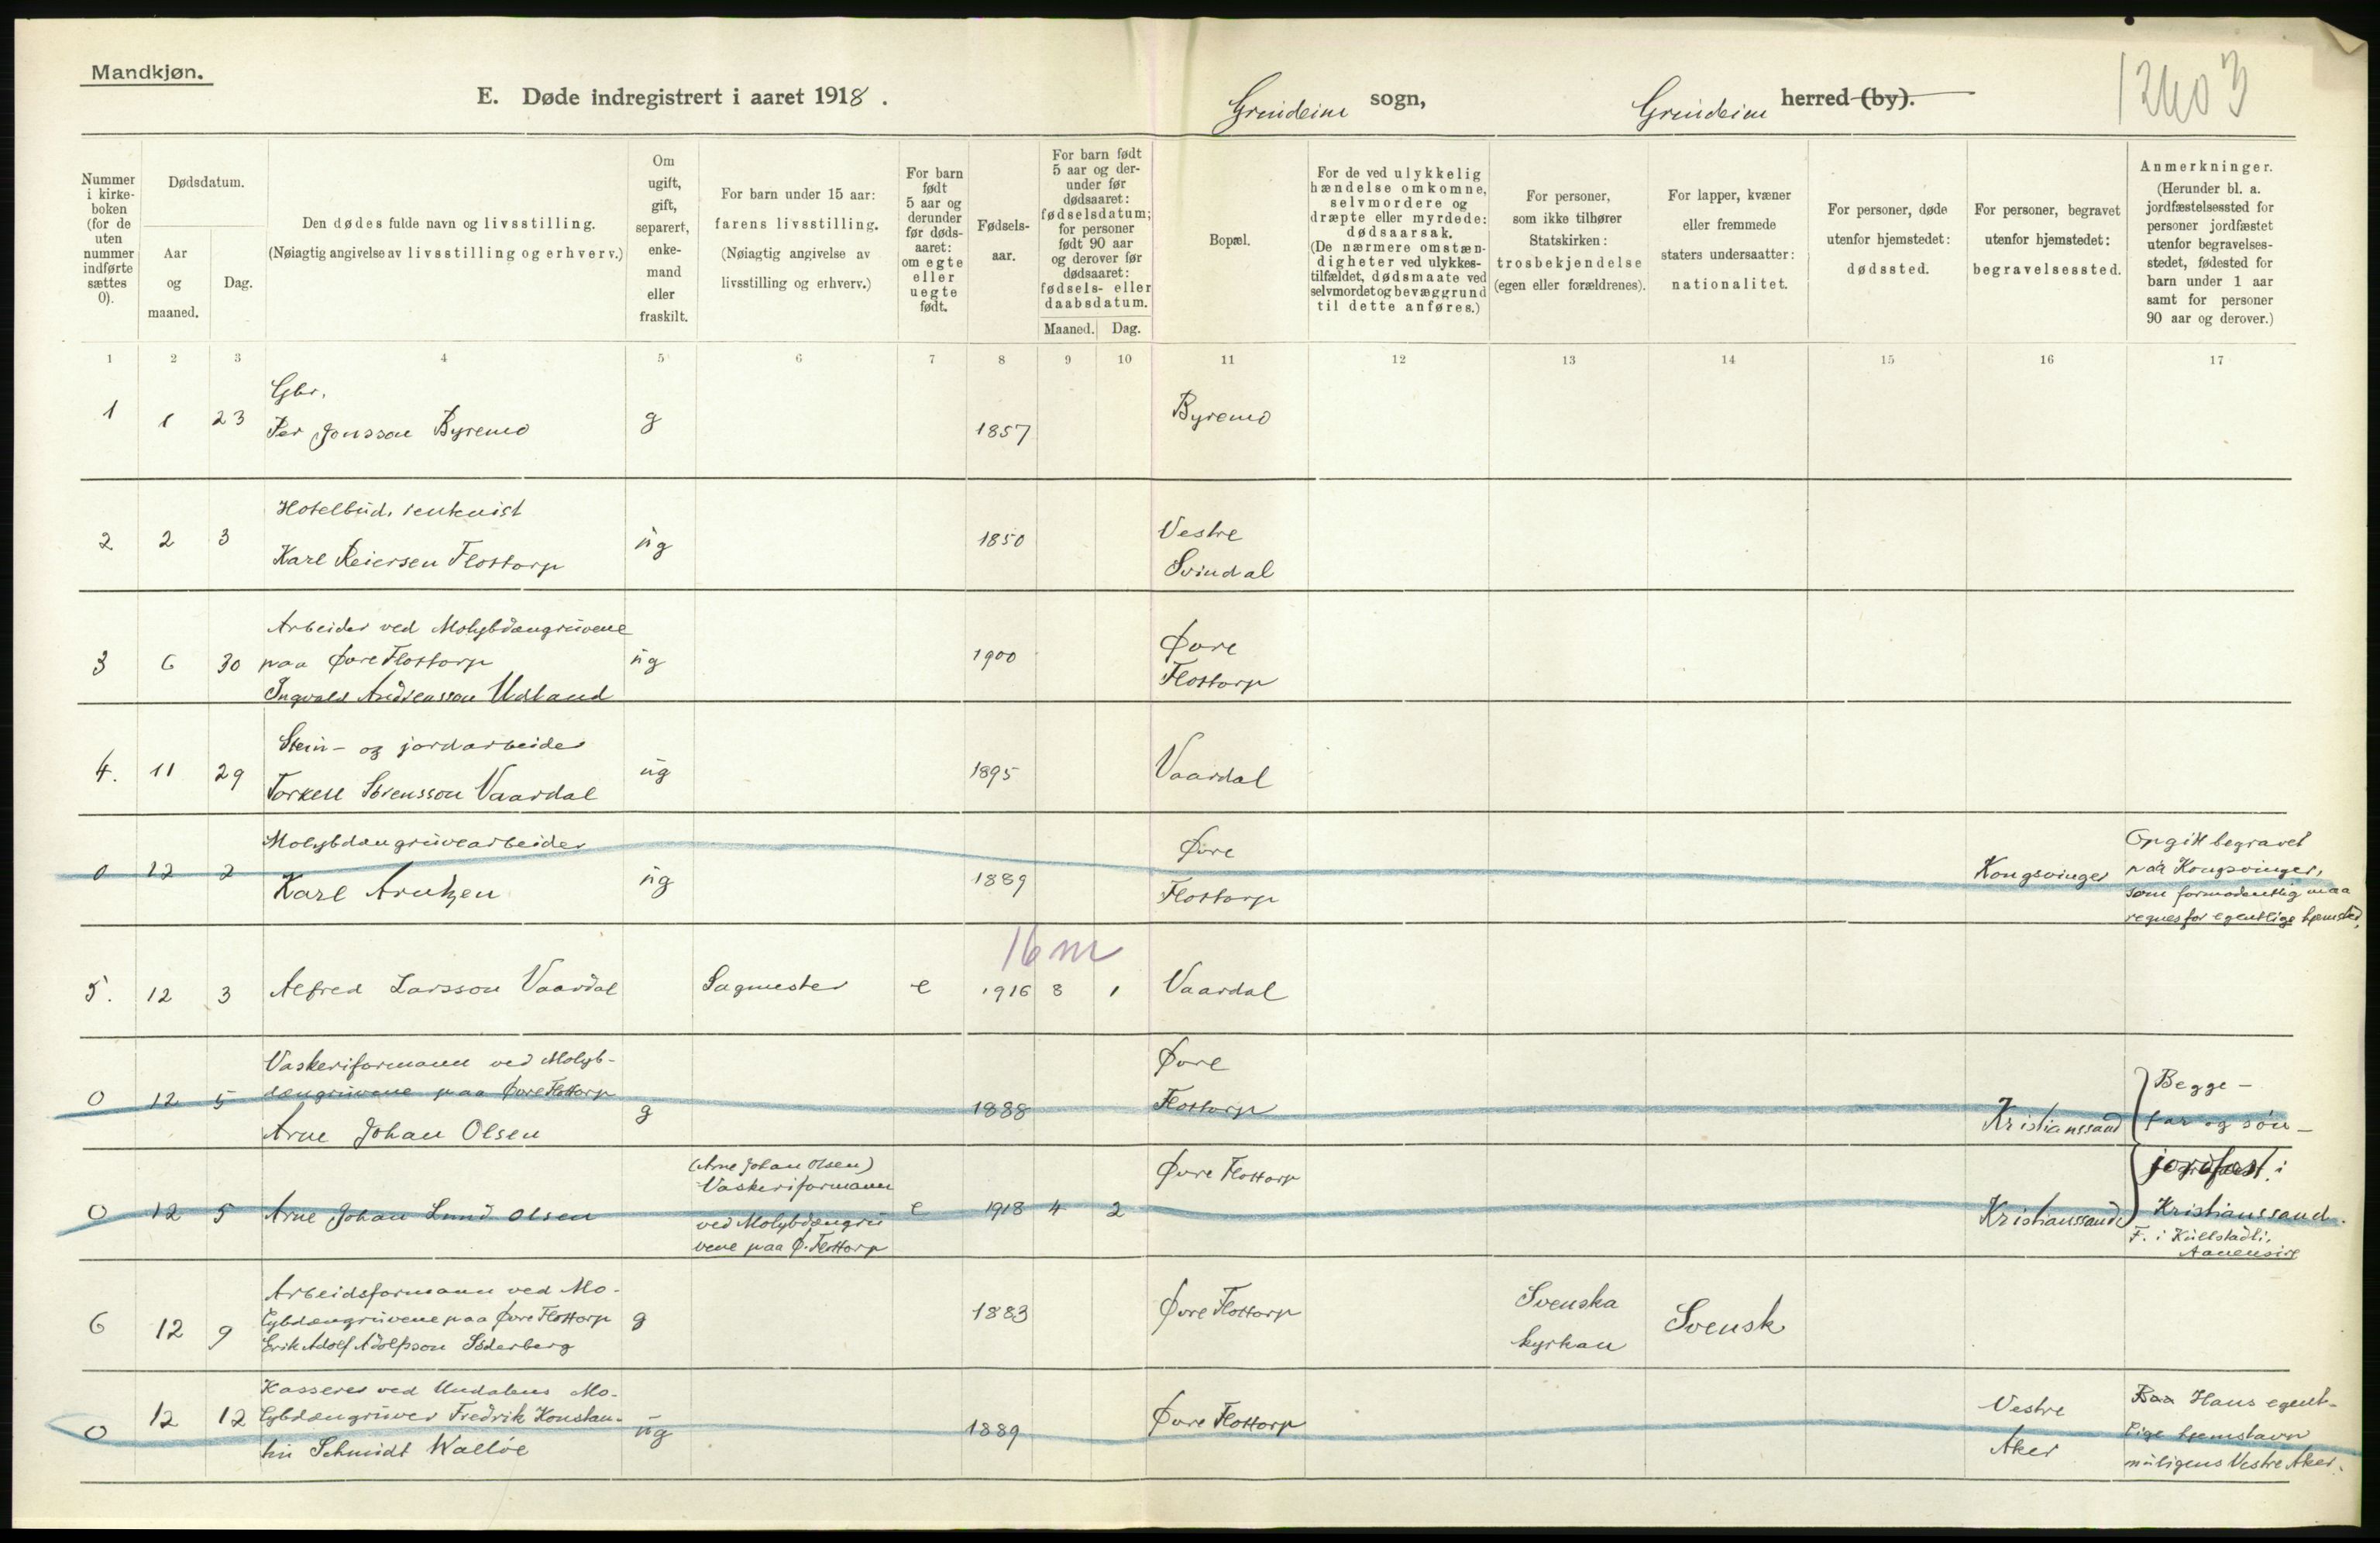 Mandkjøn.
E. Døde indregistrert i aaret 1918. Grindeim sogn, Grindeim herred (by).
12403
Nummer i kirke-boken (for de uten nummer indførte sættes 0).
Dødsdatum.
Aar og maaned.
Dag.
Den dødes fulde navn og livsstilling.
(Nøiagtig angivelse av livsstilling og erhverv.)
Om ugift, gift, separert, enke-mand eller fraskilt.
For barn under 15 aar: farens livsstilling.
(Nøiagtig angivelse av livsstilling og erhverv.)
For barn født 5 aar og derunder før døds-aaret: om egte eller uegte født.
Fødsels-aar.
For barn født 5 aar og der-under før dødsaaret: fødselsdatum; for personer født 90 aar og derover før dødsaaret: fødsels- eller daabsdatum.
Maaned. Dag.
Bopæl.
For de ved ulykkelig hændelse omkomne, selvmordere og dræpte eller myrdede: dødsaarsak.
(De nærmere omstæn-digheter ved ulykkes-tilfældet, dødsmaate ved selvmordet og bevæggrund til dette anføres.)
For personer, som ikke tilhører Statskirken: trosbekjendelse (egen eller forældrenes).
For lapper, kvæner eller fremmede staters undersaatter: nationalitet.
For personer, døde utenfor hjemstedet: dødssted.
For personer, begravet utenfor hjemstedet: begravelsessted.
Anmerkninger.
(Herunder bl. a. jordfæstelsessted for personer jordfæstet utenfor begravelses-stedet, fødested for barn under 1 aar samt for personer 90 aar og derover.)
1 2 3 4 5 6 7 8 9 10 11 12 13 14 15 16 17
Gbr.
1 1 23 Per Jonsson Byremo g 1857 Byremo
Hotelbud. rentenist
2 2 3 Karl Reiersen Flottorp ug 1850 Vestre
Svindal
Arbeider ved Molybdængruvene
3 6 30 paa Øvre Flottorp ug 1900 Øvre
Flottorp
Ingvald Andreasson Udland
Stein- og jordarbeider
4. 11 29 Torkell Sørensson Vaardal ug 1895 Vaardal
Molybdængruvearbeider
0 12 2 Karl Arntzen ug 1889 Øvre
Flottorp
Kongsvinger
Opgitt begravet
paa Kongsvinger,
som formodentlig maa
regnes for egentlige hjemsted,
16 m
5. 12 3 Alfred Larsson Vaardal Sagmester e 1916 8 1 Vaardal
Vaskeriformann ved Molyb-
dængruvene paa Øvre Flottorp
0 12 5 Arne Johan Olsen g 1888 Øvre
Flottorp
Kristianssand
Begge -
far og søn -
0 12 5 Arne Johan Lund Olsen
(Arne Johan Olsen)
Vaskeriformann
ved Molybdængru
vene paa Ø. Flottorp
e 1918 4 2 Øvre Flottorp
Kristianssand
jordfæst. i
Kristianssand.
F. i
Aanensire
Arbeidsformann ved Mo-
lybdængruvene paa Øvre Flottorp
6 12 9 Erik Adolf Adolfsson Söderberg g 1883 Øvre Flottorp
Svenska
kyrkan
Svensk
Kasserer ved Undalens Mo-
lybdængruver Fredrik Konstan-
tin Schmidt Walløe
0 12 12 ug 1889 Øvre Flottorp
Vestre
Aker
Hans egent-
lige hjemstavn
muligens Vestre Aker.